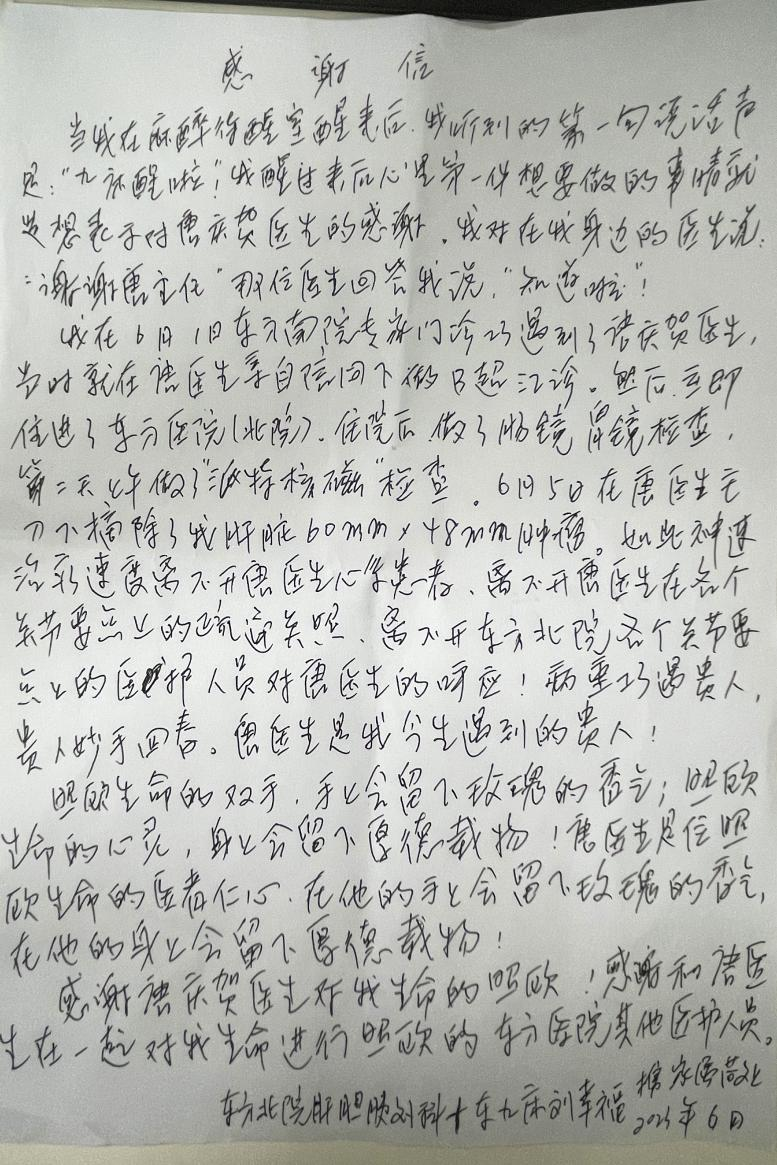 感谢信
当我在麻醉待醒室醒来后,我听到的第一句说话声
是:"九床醒啦"!我醒过来后心里第一件想要做的事情就
是想表示对唐庆贺医生的感谢。我对在我身边的医生说:
"谢谢唐主任"那位医生回答我说,"知道啦"!
我在6月1日东方南院专家门诊巧遇到了唐庆贺医生,
当时就在唐医生亲自陪同下做B超汇诊。然后立即
住进了东方医院(北院)。住院后做了肠镜胃镜检查,
第二天上午做了"派特核磁"检查。6月5日在唐医生主
刀下摘除了我肝脏60mm×48mm肿瘤。如此神速
治疗速度离不开唐医生心系患者、离不开唐医生在各个
关节要点上的疏通关照、离不开东方北院各个关节要
点上的医护人员对唐医生的呼应!病重巧遇贵人,
贵人妙手回春。唐医生是我今生遇到的贵人!
照顾生命的双手,手上会留下玫瑰的香气;照顾
生命的心灵,身上会留下厚德载物!唐医生是位照
顾生命的医者仁心、在他的手上会留下玫瑰的香气,
在他的身上会留下厚德载物!
感谢唐庆贺医生对我生命的照顾!感谢和唐医
生在一起对我生命进行照顾的东方医院其他医护人员。
东方北院肝胆胰外科十东九床刘幸福携家属敬上
2025年6月